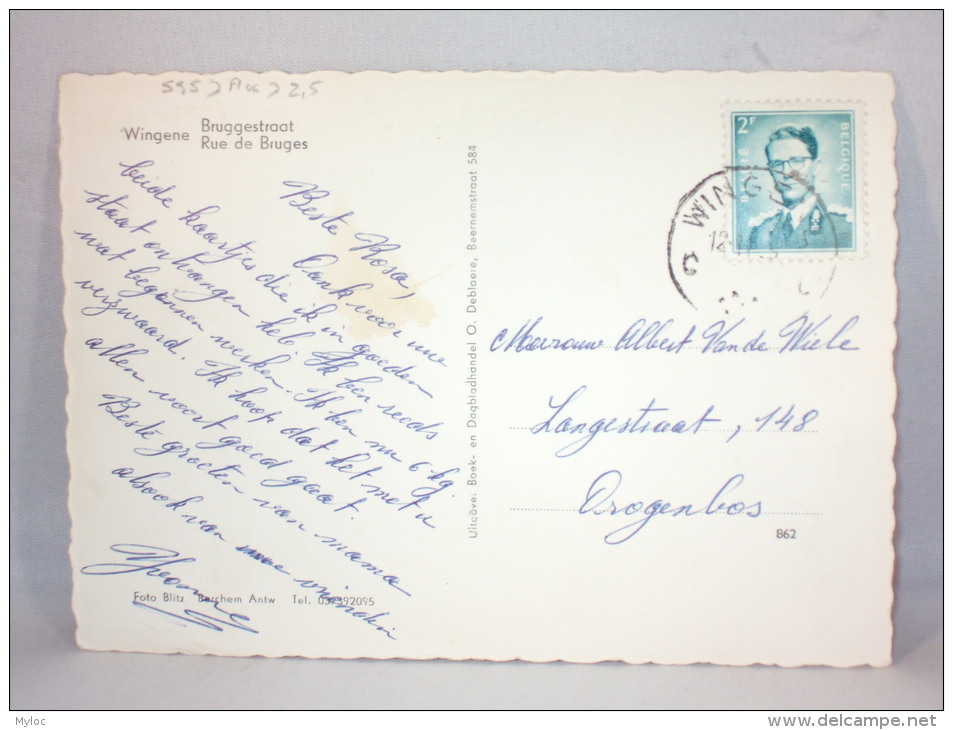 595 > A06 > 2,5
Wingene
Bruggestraat
Rue de Bruges
Beste Rosa,
Dank voor uw
beide kaartjes die ik in goeden
staat ontvangen heb. Ik ben reeds
wat begonnen werken. Ik ben nu 6 kg.
verzwaard. Ik hoop dat het met u
allen voort goed gaat.
Beste groeten van mama
alsook van uwe vriendin
Yvonne
Foto Blitz Berchem Antw Tel. 03/392095
Uitgave: Boek- en Dagbladhandel O. Deblaere, Beernemstraat 584
2F
BELGIQUE
WING
12
Mevrouw Albert Van de Wiele
Langestraat, 148
Drogenbos
862
Myloc
delcampe.net